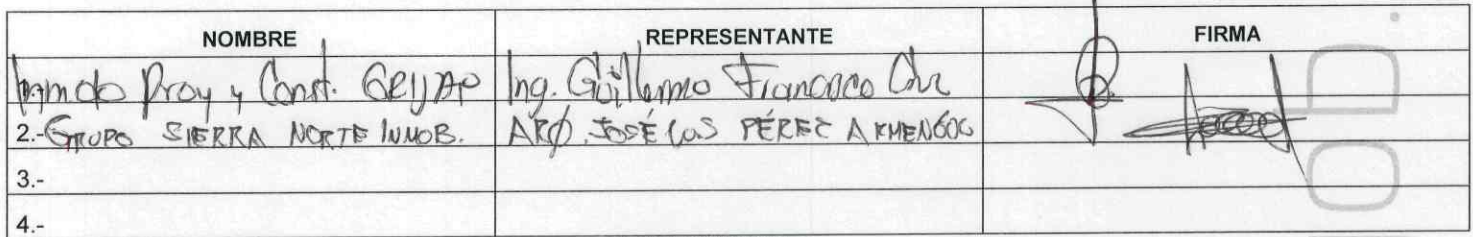 NOMBRE REPRESENTANTE FIRMA
Proy y Const. Ing. Guillermo Francisco
2.- GRUPO SIERRA NORTE INMOB. ARQ. JOSÉ LUIS PÉREZ ARMENGOG
3.-
4.-